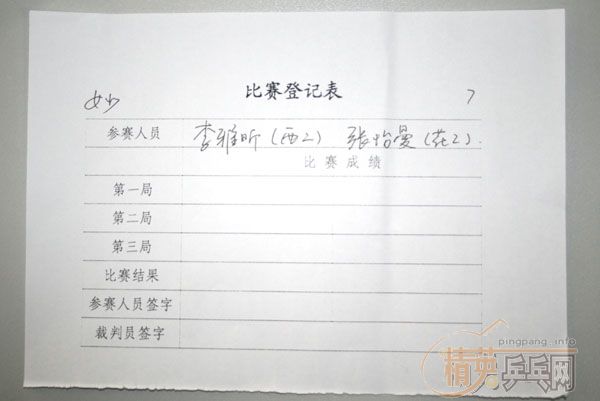 比赛登记表
女少 7
参赛人员 李雅昕(西二) 张怡曼(花2).
比赛成绩
第一局
第二局
第三局
比赛结果
参赛人员签字
裁判员签字
pingpang.info
精英乒乓网